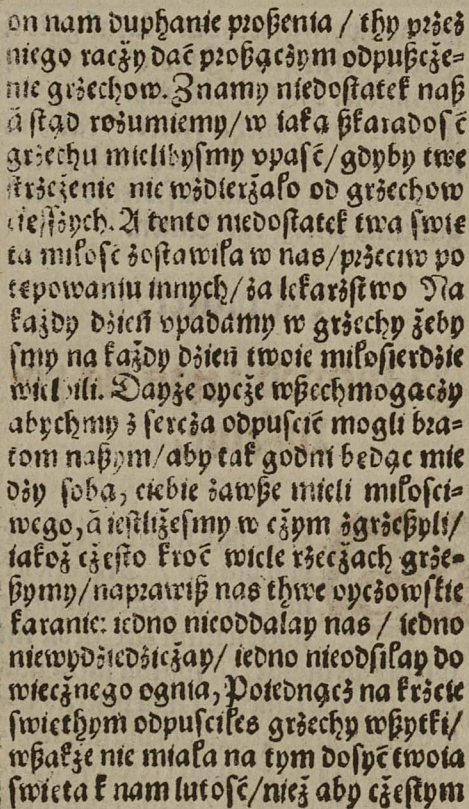 on nam duphanie proßenia / thy przez
niego raczży dać proßączżym odpußcże⸗
nie grzechow. Znamy niedostatek naß
á stąd rozumiemy/w iaką ßkaradość
grzechu mielibysmy vpaść/gdyby twe
strzeżenie nic wździerżało od grzechow
cięsszych. A tento niedostatek twa swie
ta miłość zostawiła w nas/przeciw po
tępowaniu innych/za lekarzstwo Na
każdy dzień vpadamy w grzechy żeby
smy na każdy dzień twoie miłosierdzie
wielbili. Dayże oycże wßechmogaczy
abychmy z sercża odpuscić mogli bra⸗
tom naßym/aby tak godni będąc mie
dzy sobą, ciebie zawße mieli miłosci⸗
wego, á iestliżesmy w cżym zgrzeßyli/
iakoż cżęsto kroć wiele rzecżach grze⸗
ßymy/naprawiß nas thwe oycżowskie
karanie: iedno nieoddalay nas / iedno
niewydziedzicżay/ iedno nieodsiłay do
wiecżnego ognia, Poiednącz na krzcie
swiethym odpusciłes grzechy wßytki/
wßakże nie miała na tym dosyć twoia
swieta k nam lutość/nież aby cżęstym